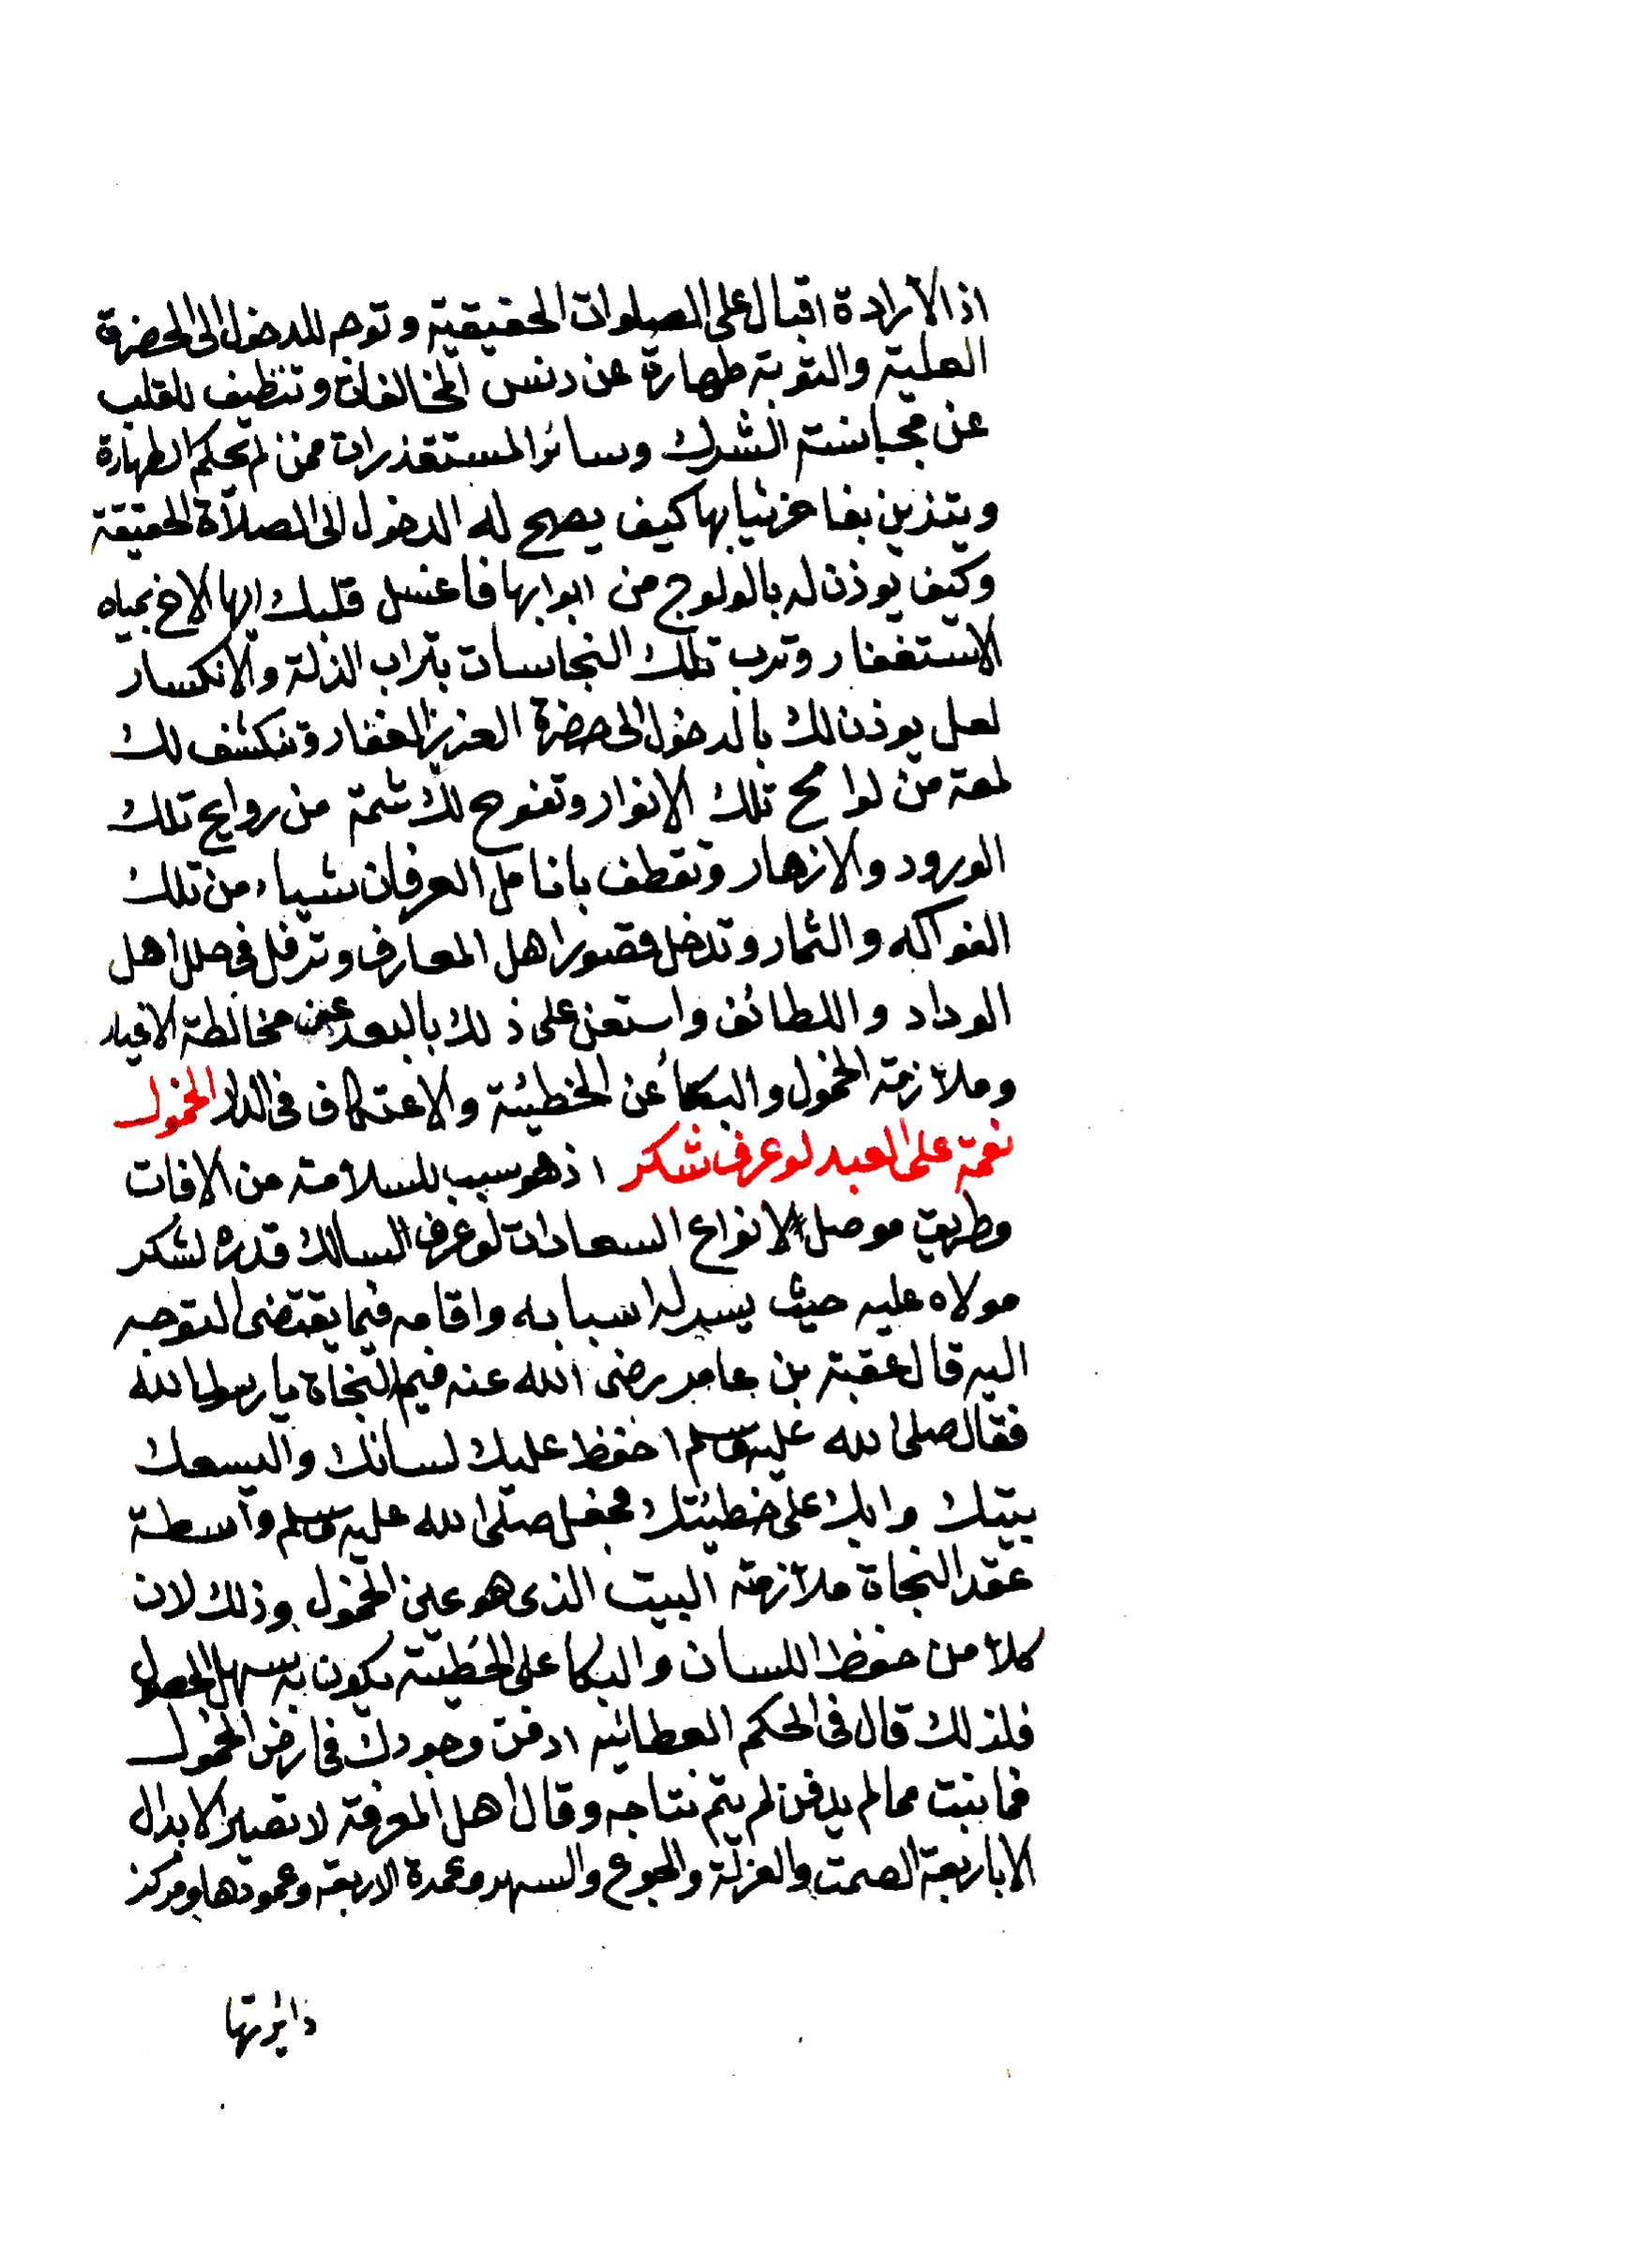 اذ الارادة اقبال على الصلوات الحقيقية وتوجه للدخول الى الحضرة
العلية والتوبة طهارة عن دنس المخالفات وتنظيف للقلب
عن مجانسة الشرك وسائر المستقذرات فمن لم يحكم الطهارة
ويتزين بفاخر ثيابها كيف يصح له الدخول الى الصلاة الحقيقة
وكيف يوذن له بالولوج من ابوابها فاغسل قلبك ايها الاخ بمياه
الاستغفار وترب تلك النجاسات بتراب الذلة والانكسار
لعل يوذن لك بالدخول الى حضرة العزيز الغفار وتنكشف لك
لمعة من لوامح تلك الانوار وتفوح لك شمة من روايح تلك
الورود والازهار وتقطف بانامل العرفان شياء من تلك
الفواكه والثمار وتدخل قصور اهل المعارف وترفل في حلل اهل
الوداد واللطائف واستعن على ذلك بالبعد عن مخالطة الاغيار
وملازمة الخمول والبكا عن الخطيئة والاعتكاف في الدار الخمول
نعمة على العبد لو عرف شكر اذ هو سبب للسلامة من الافات
وطريق موصل لانواع السعادات لو عرف السالك قدره لشكر
مولاه عليه حيث يسر له اسبابه واقامه فيما يقتضى التوجه
اليه قال عقبة بن عامر رضى الله عنه فيم النجاة يا رسول الله
فقال صلى الله عليه وسلم احفظ عليك لسانك واليسعك
بيتك وابك على خطيئتك فجعل صلى الله عليه وسلم واسطة
عقد النجاة ملازمة البيت الذى هو عين الخمول وذلك لان
كلا من حفظ اللسان والبكا على الخطية يكون به سهل الحصول
فلذلك قال في الحكم العطائيه ادفن وجودك في ارض الخمول
فما نبت مما لم يدفن لم يتم نتاجه وقال اهل المعرفة لا تصير الابدال
الا باربعة الصمت والعزلة والجوع والسهر وعمدة الاربعة وعمودها ومركز
دائرتها